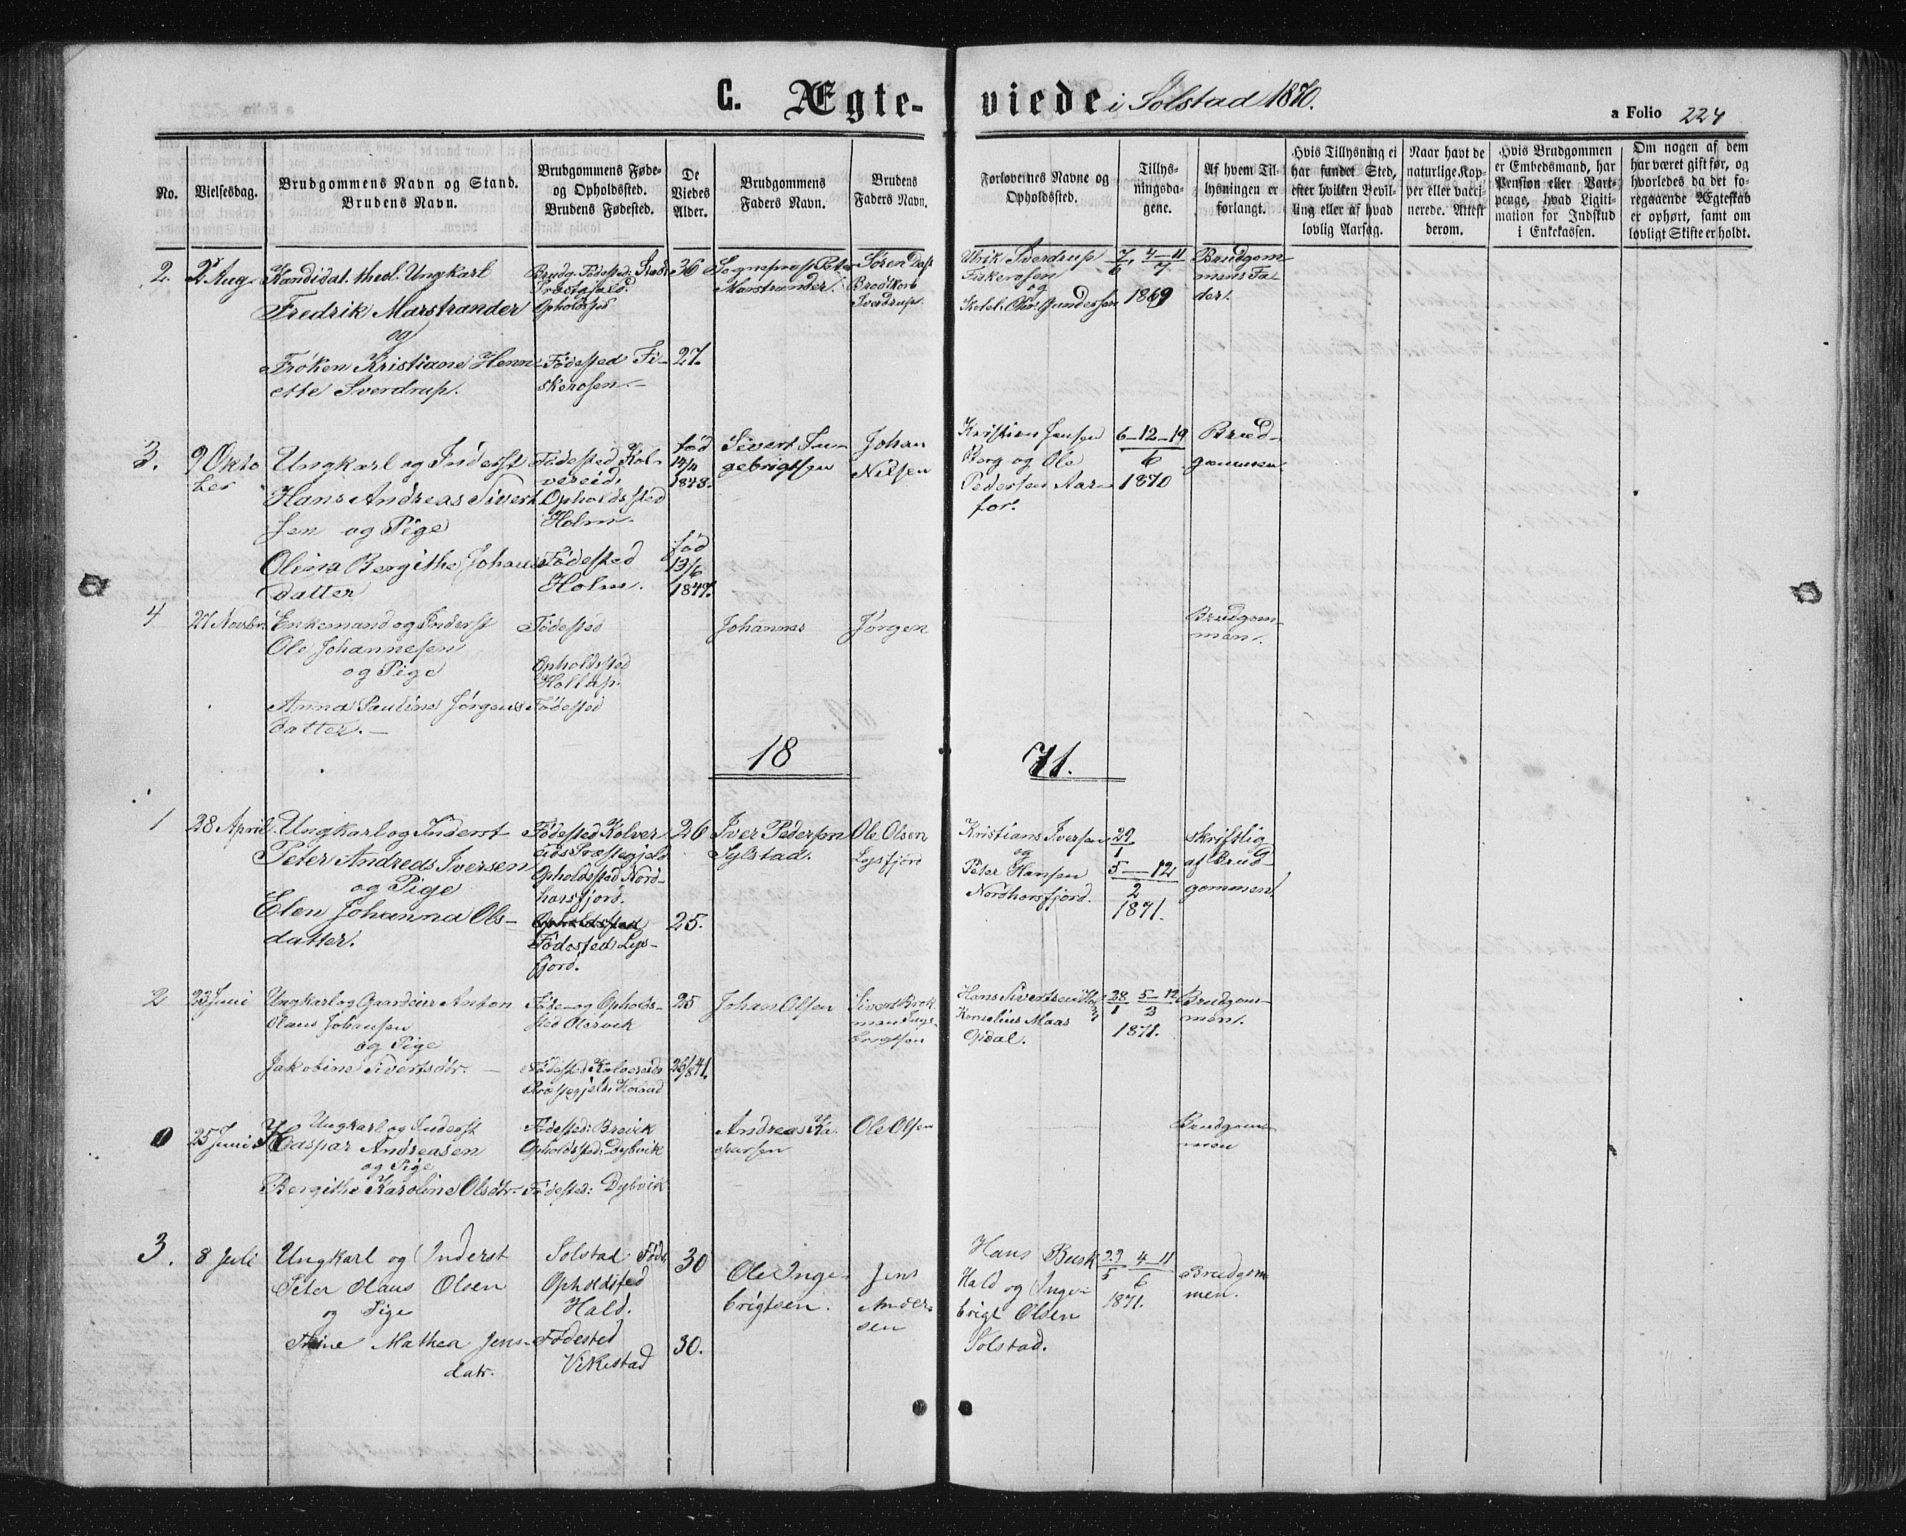 C. Ægte-viede i Solstad 1870.
a Folio 224
No.
Vielsesdag.
Brudgommens Navn og Stand.
Brudens Navn.
Brudgommens Føde-
og Opholdssted.
Brudens Fødested.
De
Viedes
Alder.
Brudgommens
Faders Navn.
Brudens
Faders Navn.
Forlovernes Navne og
Opholdssted.
Tillys-
ningsda-
gene.
Af hvem Til-
lysningen er
forlangt.
Hvis Tillysning ei
har fundet Sted,
efter hvilken Bevil-
ling eller af hvad
lovlig Aarsag.
Naar havt de
naturlige Kop-
per eller vacci-
nerede. Attest
derom.
Hvis Brudgommen
er Embedsmand, har
Pension eller Vart-
penge, hvad Ligiti-
mation for Indskud
i Enkekassen.
Om nogen af dem
har været gift før, og
hvorledes da det fo-
regaaende Ægteskab
er ophørt, samt om
lovligt Skifte er holdt.
2.
2 Aug.
Kandidat theol. Ungkarl
Fredrik Marstrander
og
Frøken Kristiane Henri-
ette Sverdrup.
Brudg. Fødested:
Præstegjeld.
Opholdssted
Fødested Fi-
skerosen.
36
27.
Sognepræst Peter
Marstrander.
Søren
Sverdrup.
Ulrik Sverdrup
Fiskerosen
og
Gundersen
7/6 4-11/7
1869
Brudgom-
mens Fa-
der.
3.
9 Okto
ber
Ungkarl og Inderst
Hans Andreas Sivert
sen og Pige
Olina Bergithe Johans
datter
Fødested Kol-
vereid.
Opholdssted
Holm.
Fødested
Holm.
fød
14/11
1848.
fød
13/6
1847.
Sivert In-
gebrigtsen
Johan
Nilsen
Kristian Jensen
Berg og Ole
Pedersen Aar-
for.
6-12-19
6
1870
Brud-
gommen
4
27 Novbr.
Enkemand og Inderst
Ole Johannesen
og Pige
Anna Pauline Jørgens
datter.
Fødested
Opholdssted
Fødested
Johannes
Jørgen
Brudgom-
men.
18 71.
1
28 April.
Ungkarl og Inderst
Peter Andreas Iversen
og Pige
Elen Johanna Ols-
datter.
Fødested Kolver
eids Præstegjeld
Opholdsstad Nord-
horsfjord.
Opholdsstad
Fødested Lys-
fjord.
26
25.
Iver Pedersen
Sylstad.
Ole Olsen
Lysfjord
Kristians Iversen
og
Peter Hansen
Nordhorsfjord.
29/1
5-12
2
1871.
skriftlig
af Brud
gommen
2
23 Juni
Ungkarl og Gaardeier Anton
Olaus Johansen
og Pige
Jakobine Sivertsdtr.
Føde- og Opholds-
sted Olsrvik
Fødested Kolvereids
Præstegjeld:
25
26/1841.
Johan Olsen
Sivert
brigtsen
Hans Sivertsen
Kornelius Maas
Opdal.
28/1 5-12/2
1871.
Brudgom-
men.
0
25 Juni
Ungkarl og Inderst
Kaspar Andreasen
og Pige
Bergithe Karoline Olsdtr.
Fødested: Brevik
Opholdssted: Dybvik
Fødested: Dybvik
Andreas Ka
sparsen
Ole Olsen
Brudgom-
men
3.
8 Juli
Ungkarl og Inderst
Peter Olaus Olsen
og Pige
Trine Mathea Jens-
datr.
Solstad Føde
Opholdsted
Hald.
Fødested
Vikestad
30
30.
Ole Inge-
brigtsen.
Jens
Ander-
sen
Hans Busk
Hald og Inge-
brigt Olsen
Solstad.
29/5 4-11/6
1871.
Brudgom
men.